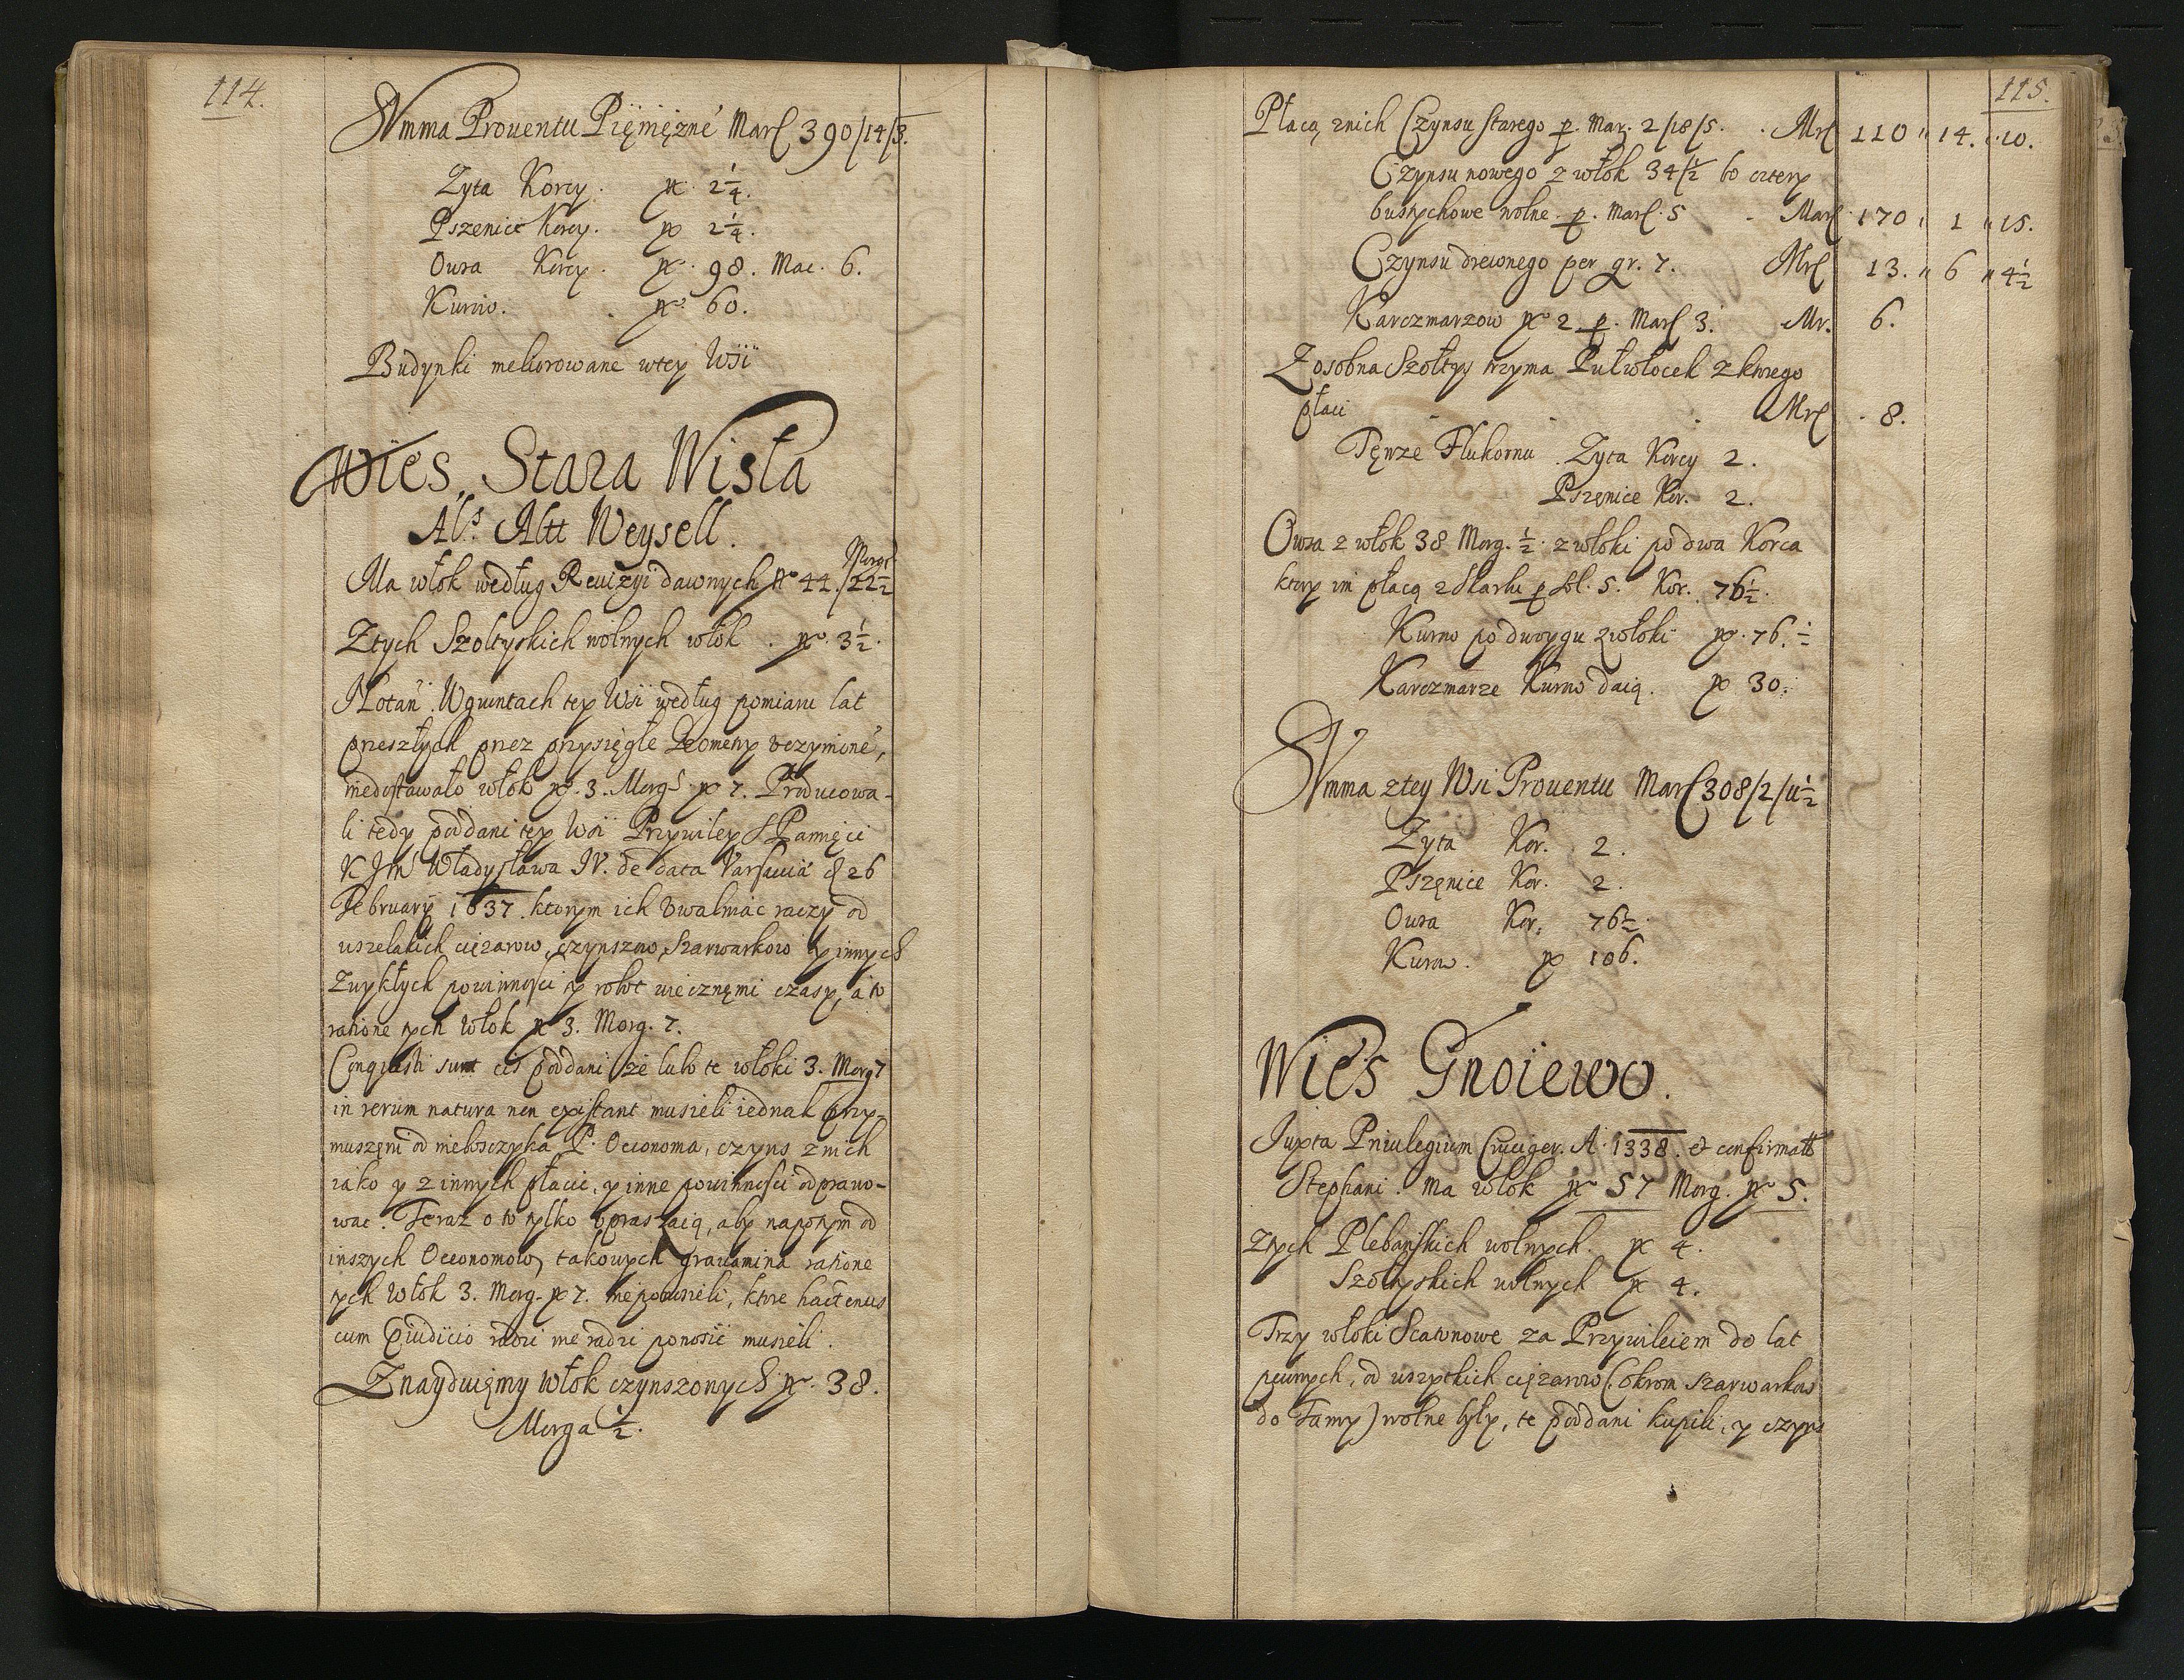 114.
Summa Prouentu Pięniężné Marc 390/14/3.
Zyta Korcy. No 2 1/4.
Pszenice Korcy. No 2 1/4.
Owsa Korcy. No. 98. Mac. 6.
Kurow. No. 60.
Budynki meliorowane wtey Wsii
Wies Stara Wisła
Als Altt Weysell.
Ma włok według Rewizyi dawnych No 44./ Morgs 22 1/2
Ztych Szołtyskich wolnych włok. No. 3 1/2.
Notań. Wgruntach tey Wsi według pomiaru lat
przeszłych przez przysięgłe Geometry vczynione,
niedostawało włok No. 3. Morgs. No 7. Producowa-
li tedy poddani tey Wsi Przywiley S Pamięci
K Jm Władysława IV. de data Varsauia d 26
February 1637. ktorym ich vwalniac raczy od
wszelakich cięzarow, czynszow, Szarwarkow y innych
Zwykłych powinnosci y robot wiecznęmi czasy, a to
ratione tych Włok No 3. Morg. 7.
Conquesti sunt cis poddani że lubo te włoki 3. Morg 7
in rerum natura non existant musieli iednak przy-
muszęni od nieboszczyka P. Oeconoma, czyns z nich
iako y z innych płacic, y inne powinnosci odprawo-
wac. Teraz o to tylko vpraszaią, aby napotym od
inszych Oeconomow, takowych grauamina ratione
tych Włok 3. Morg. No 7. nieponosili, ktore hactenus
cum Piudicio radzi nie radzi ponosić musieli.
Znayduięmy Włok czynszonych No. 38.
Morga 1/2.
115.
Płacą znich Czynsu starego p. Mar. 2/18/5. Mrc 110 " 14. " 10.
Czynsu nowego z włok 34/1/2 bo cztery
wolne p. Marc. 5 Marc 170 " 1 " 15.
Czynsu drewnego per gr. 7. Mrc 13. " 6 " 4 1/2
Karczmarzow No 2 p. Marc 3. Mr. 6.
Zosobna Szołtys trzyma Pułwłocek z ktorego
płaci Mrc 8.
Tęnze Flukornu. Zyta Korcy 2.
Pszęnice Kor. 2.
Owsa z włok 38 Morg. 1/2. z włoki po dwa Korca
ktory im płacą z Skarbu p fl. 5. Kor. 76 1/2.
Kurow po dwoygu zwłoki No. 76.
Karczmarze Kurow daią. No 30.
Summa ztey Wsi Prouentu Marc 308/2/11 1/2
Zyta Kor. 2.
Pszęnice Kor. 2.
Owsa Kor. 76 1/2.
Kurow. No 106.
Wies Gnoiewo.
Juxta Priuilegium Cruciger. A. 1338. et confirmatt
Stephani. Ma włok No 57 Morg. No 5.
Ztych Plebańskich wolnych. No 4.
Szołtyskich wolnych No 4.
Trzy włoki za Przywileiem do lat
pewnych, od wszytkich cięzarow (okrom szarwarkow
do Tamy) wolne były, te poddani kupili, y czyns